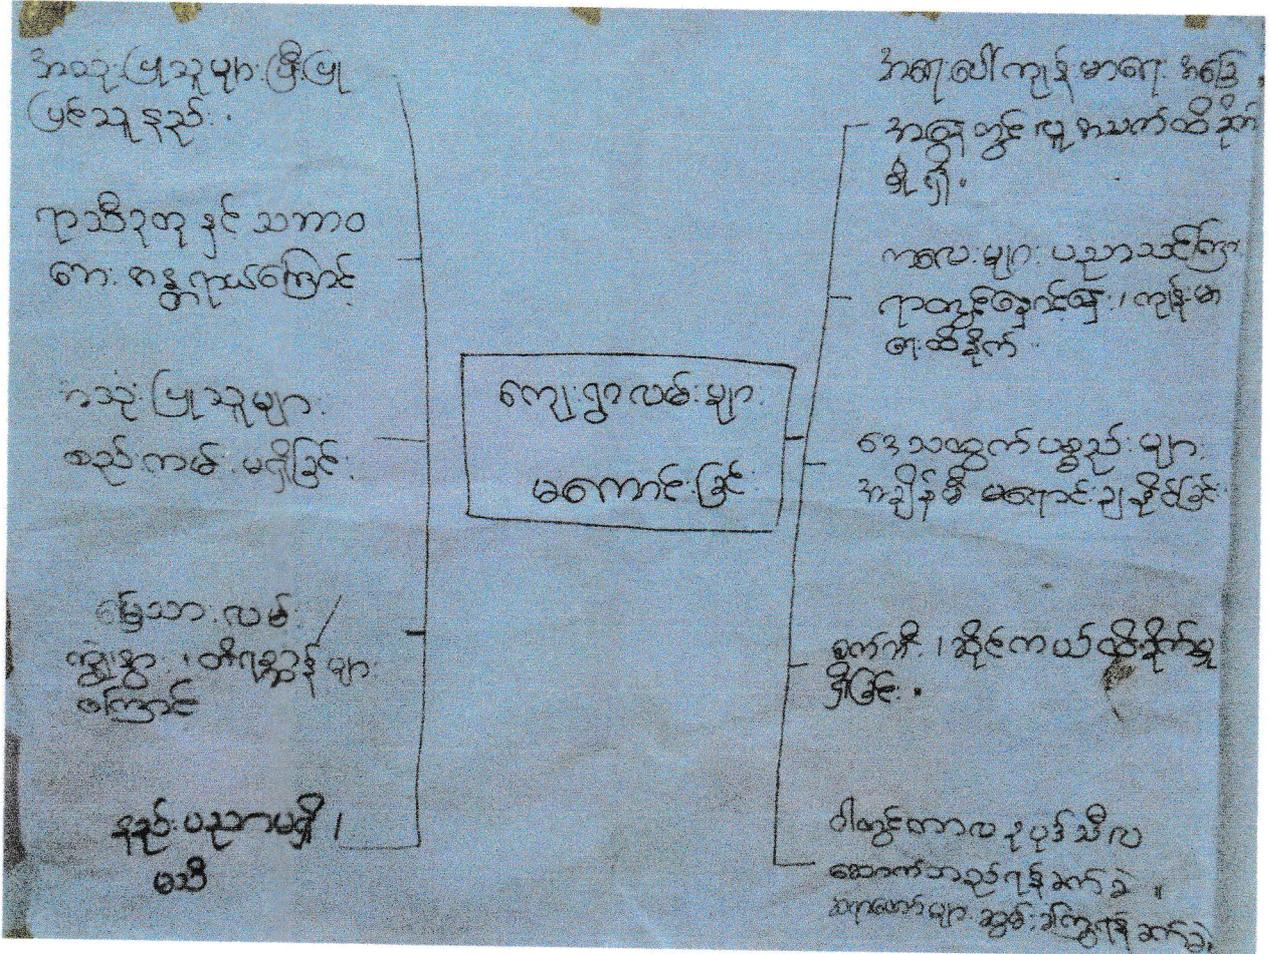 အသုံးပြုသူများပြီးပြု
ပြင်သူနည်း။
ရာသီဥတု နှင့် သဘာဝ
ဘေး အန္တရာယ်ကြောင့်
အသုံးပြုသူများ
စည်းကမ်း မရှိခြင်း
မြေသားလမ်း
ကျွဲ၊နွား ၊ တိရစ္ဆာန်များ
ကြောင့်
နည်းပညာမရှိ /
မသိ
ကျေးရွာလမ်းများ
မကောင်းခြင်း
အရေးပေါ်ကျန်းမာရေး အခြေ
အနေတွင် လူ့အသက်ထိခိုက်
မှု ရှိ။
ကလေးများ ပညာသင်ကြား
ရာတွင်နှောင့်နှေး / ကျန်းမာ
ရေးထိခိုက်
ဒေသထွက်ပစ္စည်းများ
အချိန်မီ မရောင်းချနိုင်ခြင်း
စက်ဘီး / ဆိုင်ကယ်ထိခိုက်မှု
ရှိခြင်း။
ဝါတွင်းကာလ ဥပုဒ်သီလ
ဆောက်တည်ရန်ခက်ခဲ ။
ဆွမ်းခံကြွရန်ခက်ခဲ